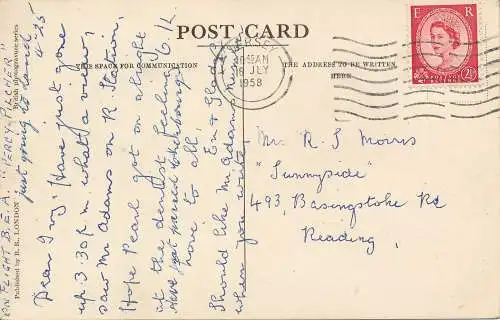 POST CARD
THIS SPACE FOR COMMUNICATION
THE ADDRESS TO BE WRITTEN
HERE
JERSEY
AM
JLY
1958
E R
POSTAGE REVENUE
2½
ON FLIGHT B.E.A. "PERCY PILCHER"
Published by R.R. LONDON
British photogravure series
just going to land 4-25
Dear Ivy. Have just gone
up. 3.30 P.M what a view,
saw Mr Adams on R. Station,
Hope Pearl got on alright
at the dentist. Feeling
have just passed Cherbourg
have to all,
Em &
Should like Mr Adams
when you write
Mr. R S Morris
"Sunnyside"
493, Basingstoke Rd
Reading.